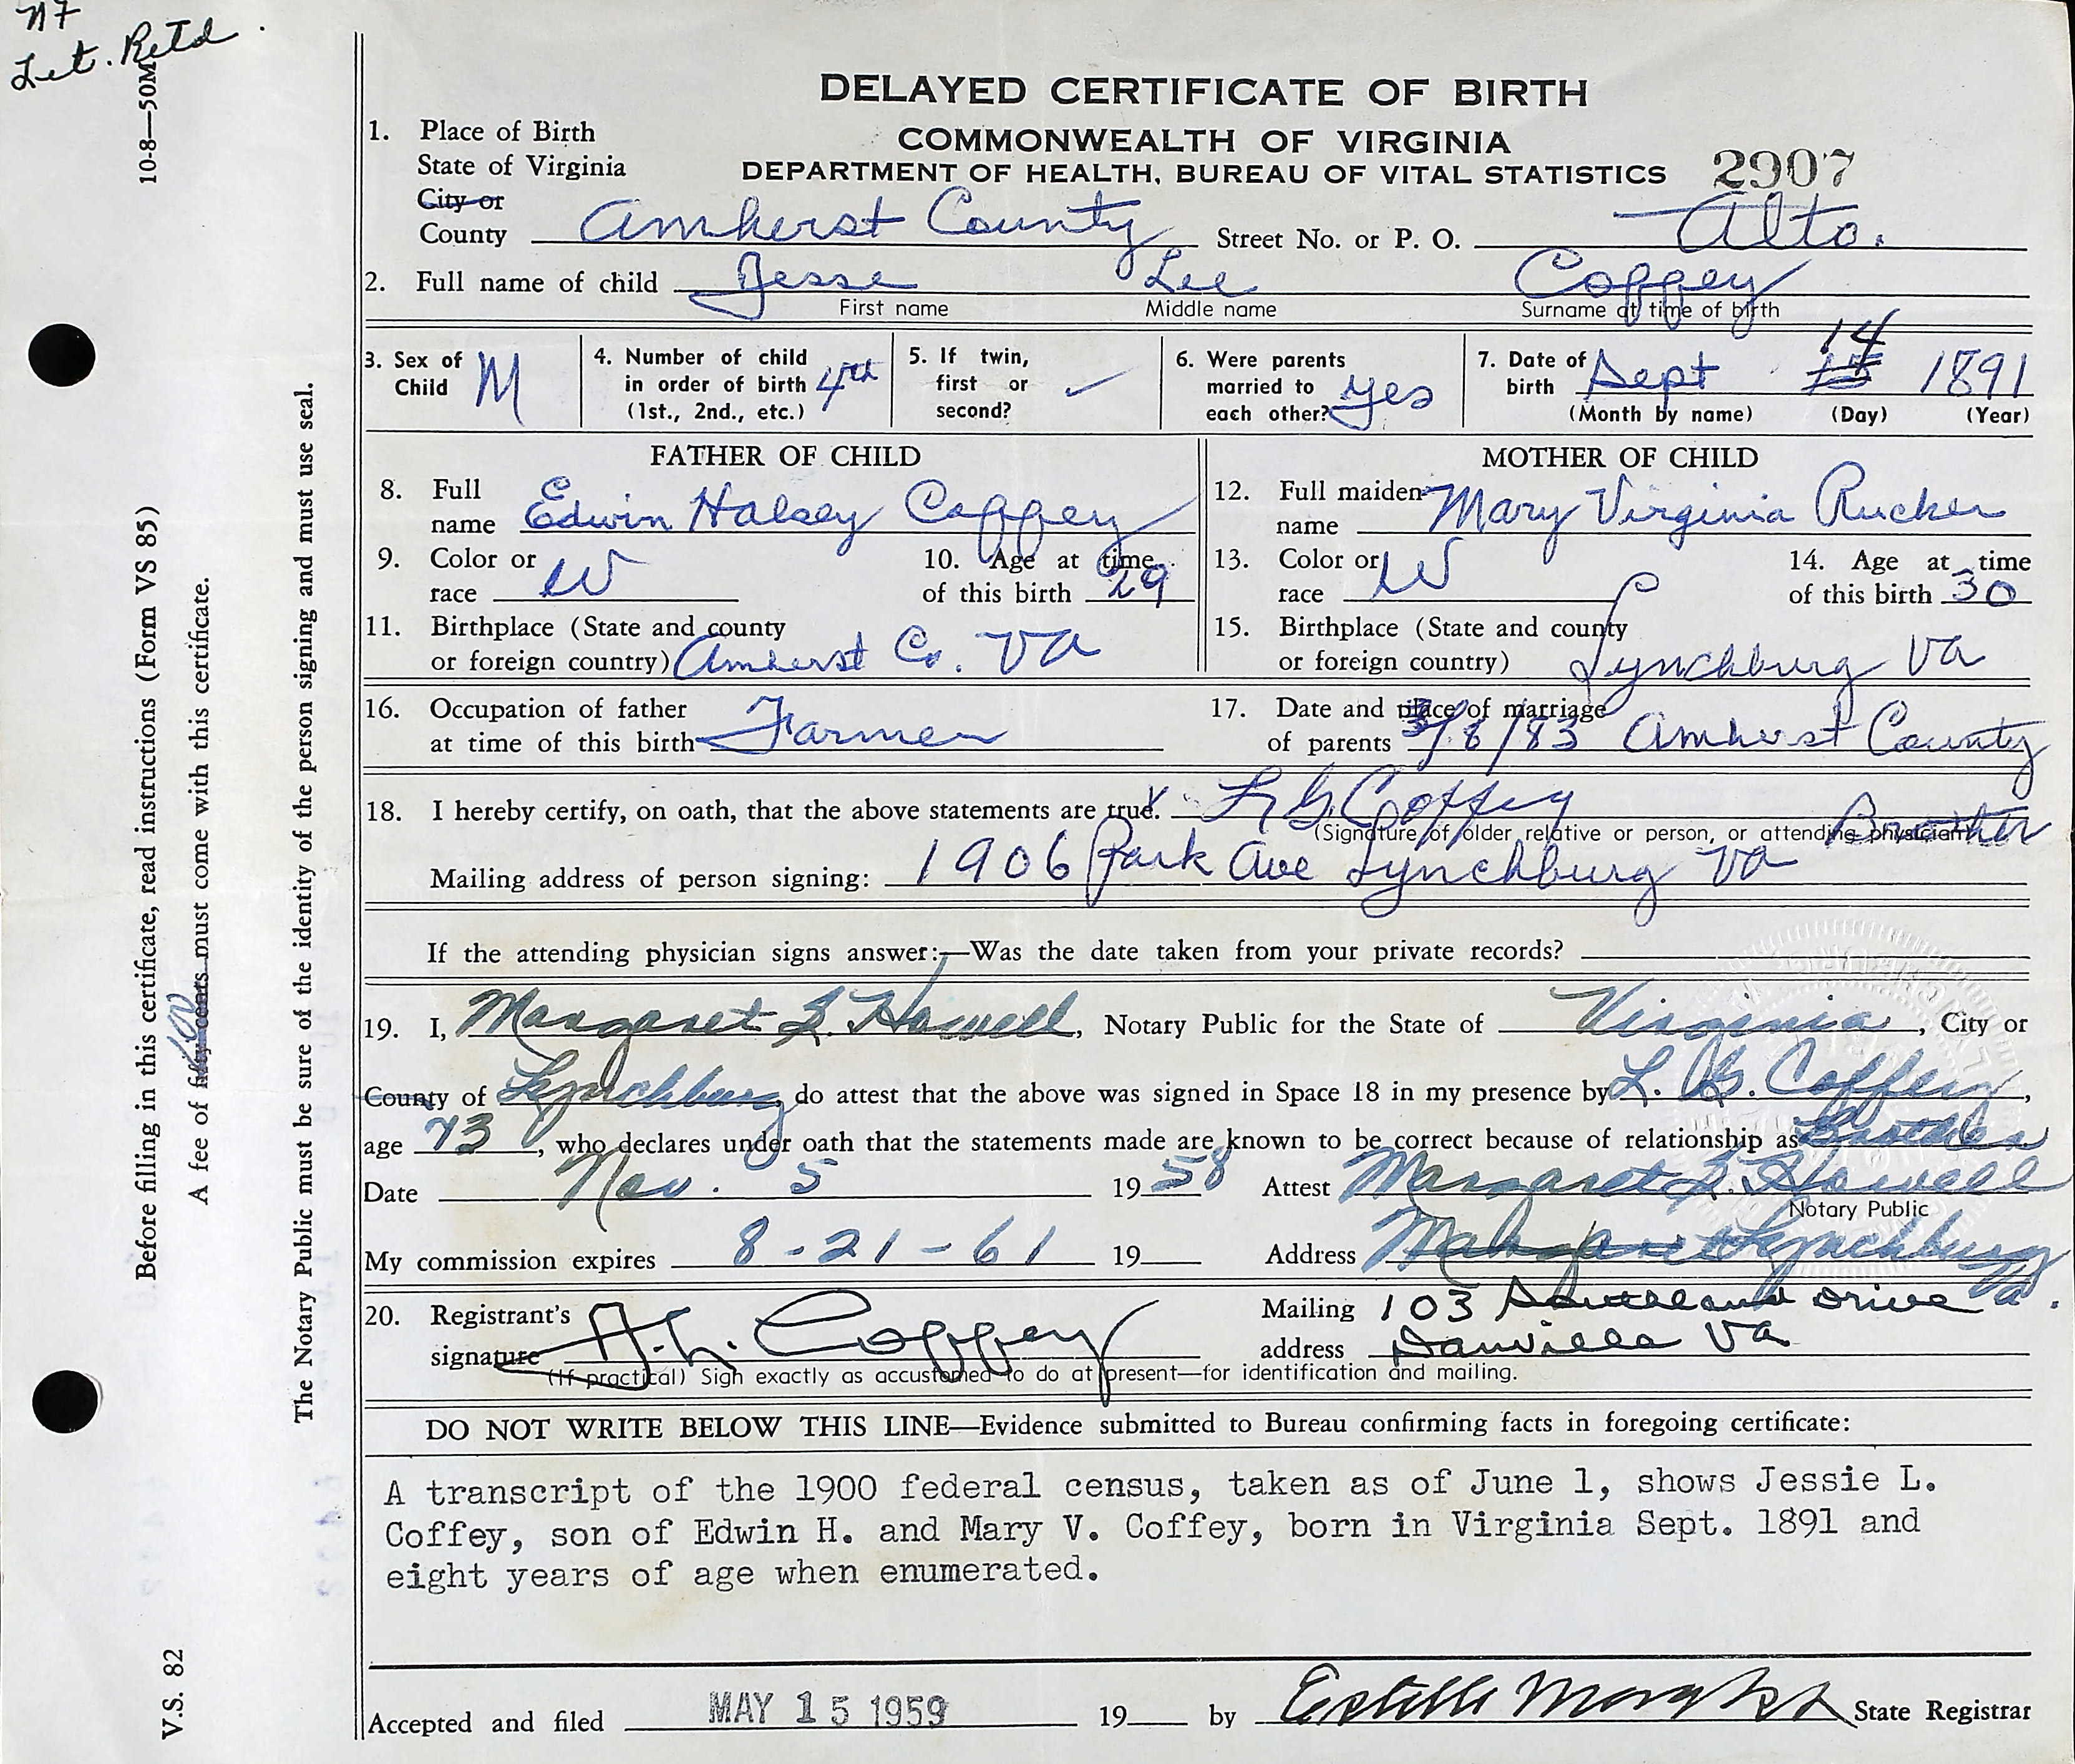 Let. Retd.
10-8—50M
DELAYED CERTIFICATE OF BIRTH
COMMONWEALTH OF VIRGINIA
DEPARTMENT OF HEALTH, BUREAU OF VITAL STATISTICS 2907
1. Place of Birth
State of Virginia
City or
County Amherst County Street No. or P. O. Alto.
2. Full name of child Jesse Lee Coffey
First name Middle name Surname at time of birth
3. Sex of Child M
4. Number of child in order of birth (1st., 2nd., etc.) 4th
5. If twin, first or second? ✓
6. Were parents married to each other? yes
7. Date of birth Sept 15 14 1891
(Month by name) (Day) (Year)
FATHER OF CHILD
8. Full name Edwin Halsey Coffey
9. Color or race W
10. Age at time of this birth 29
11. Birthplace (State and county or foreign country) Amherst Co. Va
MOTHER OF CHILD
12. Full maiden name Mary Virginia Rucker
13. Color or race W
14. Age at time of this birth 30
15. Birthplace (State and county or foreign country) Lynchburg Va
16. Occupation of father at time of this birth Farmer
17. Date and place of marriage of parents 3/8/83 Amherst County
18. I hereby certify, on oath, that the above statements are true. X L G Coffey Brother
(Signature of older relative or person, or attending physician)
Mailing address of person signing: 1906 Park Ave Lynchburg Va
If the attending physician signs answer:—Was the date taken from your private records?
19. I, Margaret L. Howell, Notary Public for the State of Virginia, City or
County of Lynchburg, do attest that the above was signed in Space 18 in my presence by L. G. Coffey,
age 73, who declares under oath that the statements made are known to be correct because of relationship as Brother
Date Nov. 5 1958 Attest Margaret L. Howell
Notary Public
My commission expires 8-21-61 19 Address Lynchburg Va.
20. Registrant's signature J. L. Coffey
Mailing address 103 Southland Drive
Danville Va
(If practical) Sign exactly as accustomed to do at present—for identification and mailing.
DO NOT WRITE BELOW THIS LINE—Evidence submitted to Bureau confirming facts in foregoing certificate:
A transcript of the 1900 federal census, taken as of June 1, shows Jessie L.
Coffey, son of Edwin H. and Mary V. Coffey, born in Virginia Sept. 1891 and
eight years of age when enumerated.
Accepted and filed MAY 15 1959 19 by Estelle State Registrar
Before filling in this certificate, read instructions (Form VS 85)
A fee of fifty cents 1.00 must come with this certificate.
The Notary Public must be sure of the identity of the person signing and must use seal.
V.S. 82